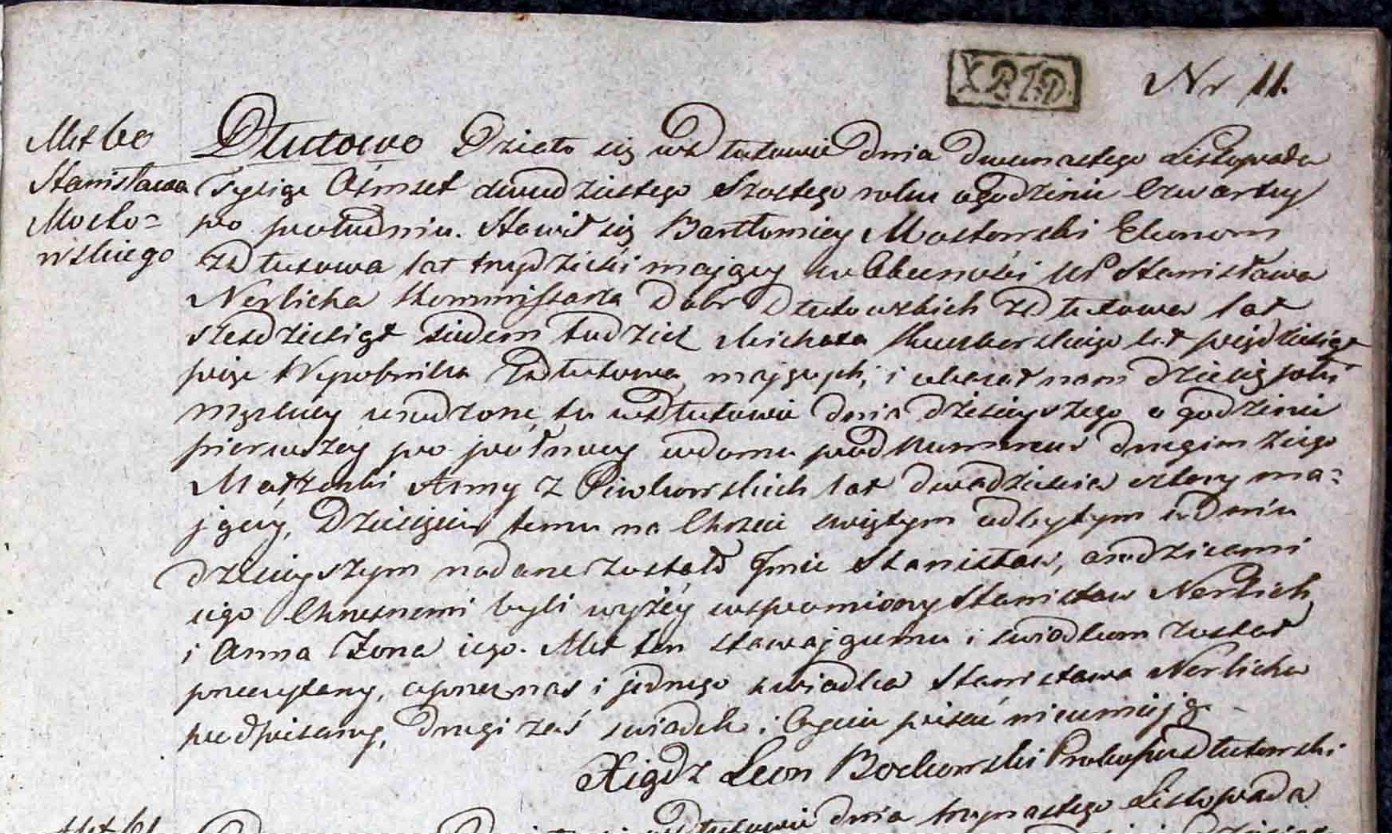 XBTD
Nr 11.
Akt bo
Stanisława
Mosto=
wskiego
Dłutowo Działo się w Dłutowie dnia dwunastego Listopada
Tysiąc Ośmset dwudziestego Szostego roku o godzinie Czwartey
po południu. Stawił się Bartłomiey Mostowski Ekonom
z Dłutowa lat trzydzieści maiący w Obecności Ur Stanisława
Nerlicha Kommissarza Dobr Dłutowskich z Dłutowa lat
sześdziesiąt siedem tudzież Michała lat pięćdziesiąt
pięć Wyrobnika z Dłutowa maiących, i okazał nam dziecię płci
męzkiey urodzone tu w Dłutowie dnia dzisieyszego o godzinie
pierwszey po pułnocy w domu pod Numerem drugim z iego
Małżonki Anny z Piwkowskich lat dwadzieścia cztery ma=
jącey, Dziecięciu temu na Chrzcie świętym odbytym w dniu
dzisieyszym nadane zostało Jmie Stanisław, a rodzicami
iego Chrzesnemi byli wyżey wspomniony Stanisław Nerlich
i Anna Żona iego. Akt ten stawaiącemu i świadkom został
przeczytany, a przez nas i jednego świadka Stanisława Nerlicha
podpisany, drugi zaś świadek i Oyciec pisać nieumieją.
Xiądz Leon Bockowski Proboszcz Dłutowski.
w Dłutowie dnia trzynastego Listopada